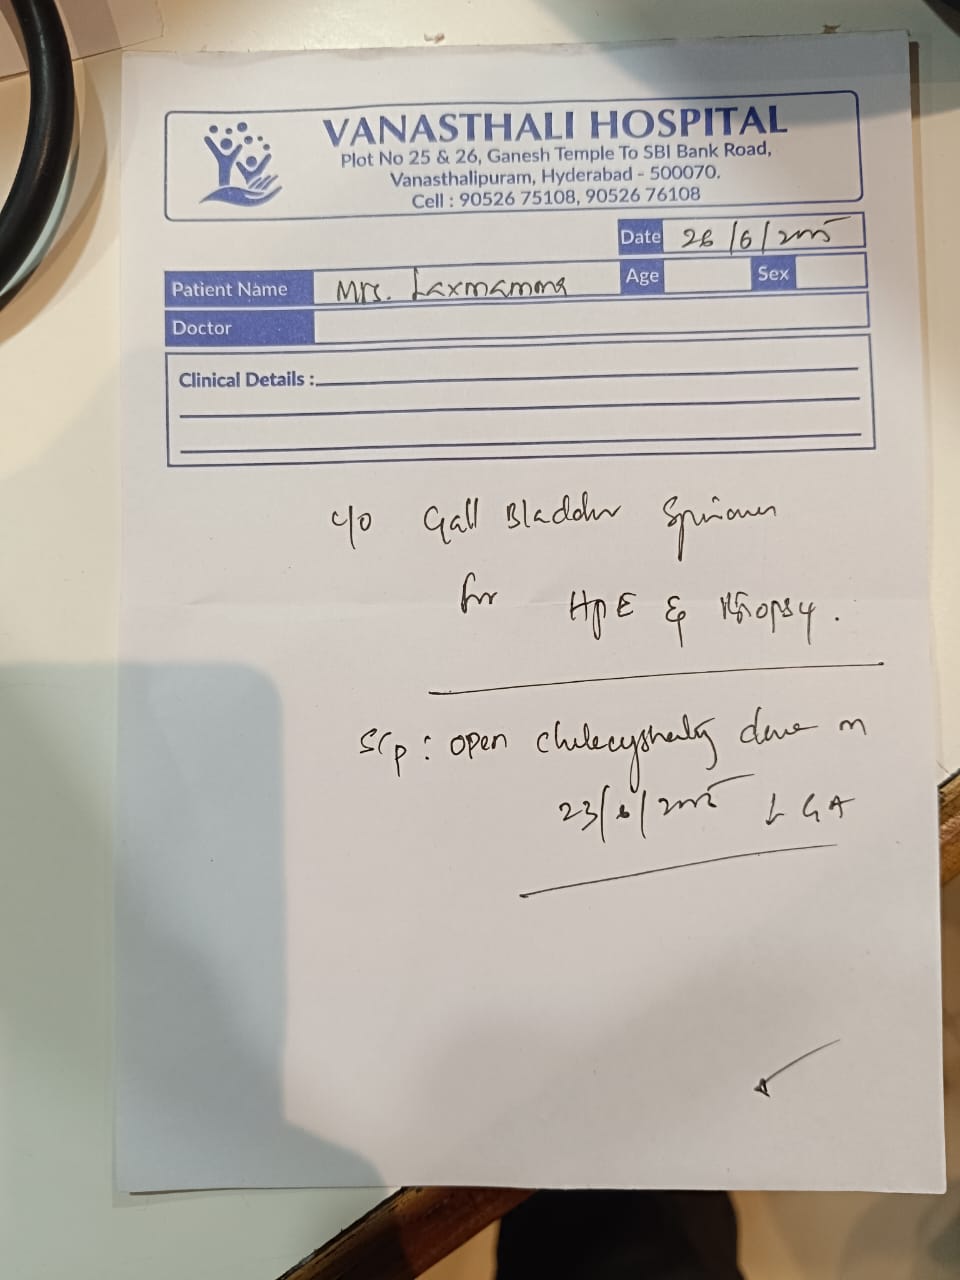 VANASTHALI HOSPITAL
Plot No 25 & 26, Ganesh Temple To SBI Bank Road,
Vanasthalipuram, Hyderabad - 500070.
Cell : 90526 75108, 90526 76108
Date 26/6/2025
Patient Name Mrs. Laxmamma Age Sex
Doctor
Clinical Details :
c/o Gall Bladder Spicimen
for HPE & Biopsy.
S/p : open done on
23/6/2025 GA